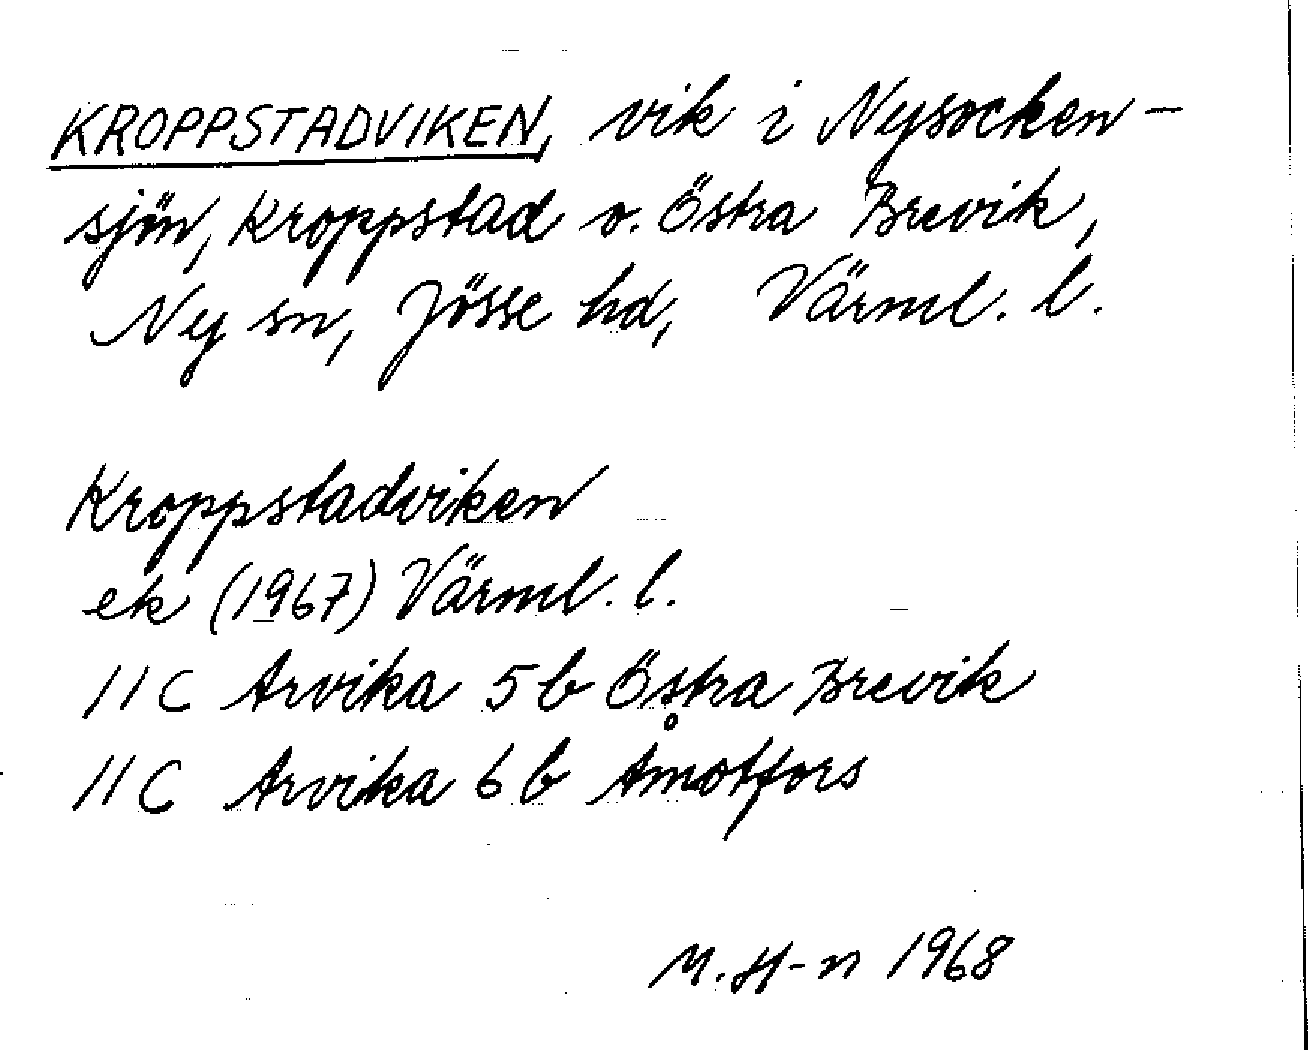 KROPPSTADVIKEN, vik i Nysocken-
sjön, Kroppstad o. Östra Brevik,
Ny sn, Jösse hd, Värml. l.
Kroppstadviken
ek (1967) Värml. l.
11C Arvika 5b Östra Brevik
11C Arvika 6b Åmotfors
M. H-n 1968